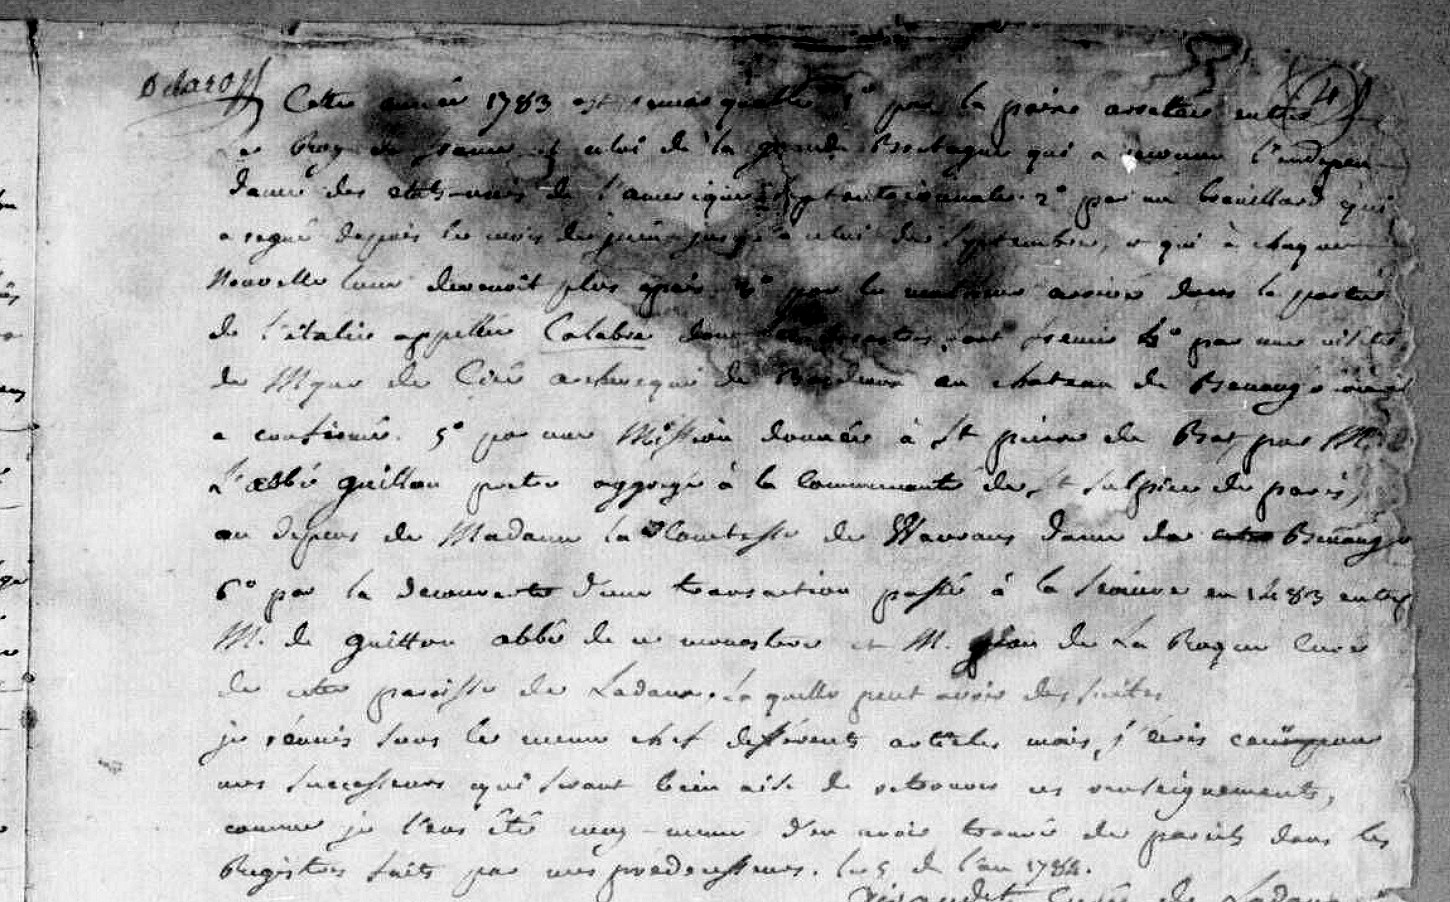 Cette année 1783 est remarquable 1° par la paix arrettée entre
Le Roy de france et celui de la grande Bretagne qui a reconnu l'indepen
dance des etats-unis de l'amerique septentrionale. 2° par un brouillard qui
a regné depuis le mois de juin jusqu'a celui de Septembre, et qui à chaque
Nouvelle lune devenoit plus epais. 3° par le malheur arrivé dans la partie
de l'italie appellée Calabre dont font fremir 4° par une visite
de Mgneur de Cicé archeveque de Bordeaux au chateau de Benauge où il
a confirmé. 5° par une Mission donnée à St pierre de Bat par M.
L'abbé guillon pretre aggregé à la Communauté de St Sulpice de paris,
au depens de Madame la Comtesse de dame de Benauge
6° par la decouverte d'une transaction passée à la Seauve en 1483 entre
M. de guitton abbé de ce monastere et M. jean de La Roque Curé
de cette paroisse de Ladaux. Laquelle peut avoir des suites
je réunis sous le meme chef differents articles mais j'écris pour
mes successeurs qui seront bien aise de retrouver ces renseignements,
comme je l'eus été moy-meme d'en avoir trouvé de pareils dans les
Registres faits par mes prédecesseurs. le 5 de l'an 1784.
Curé de Ladaux